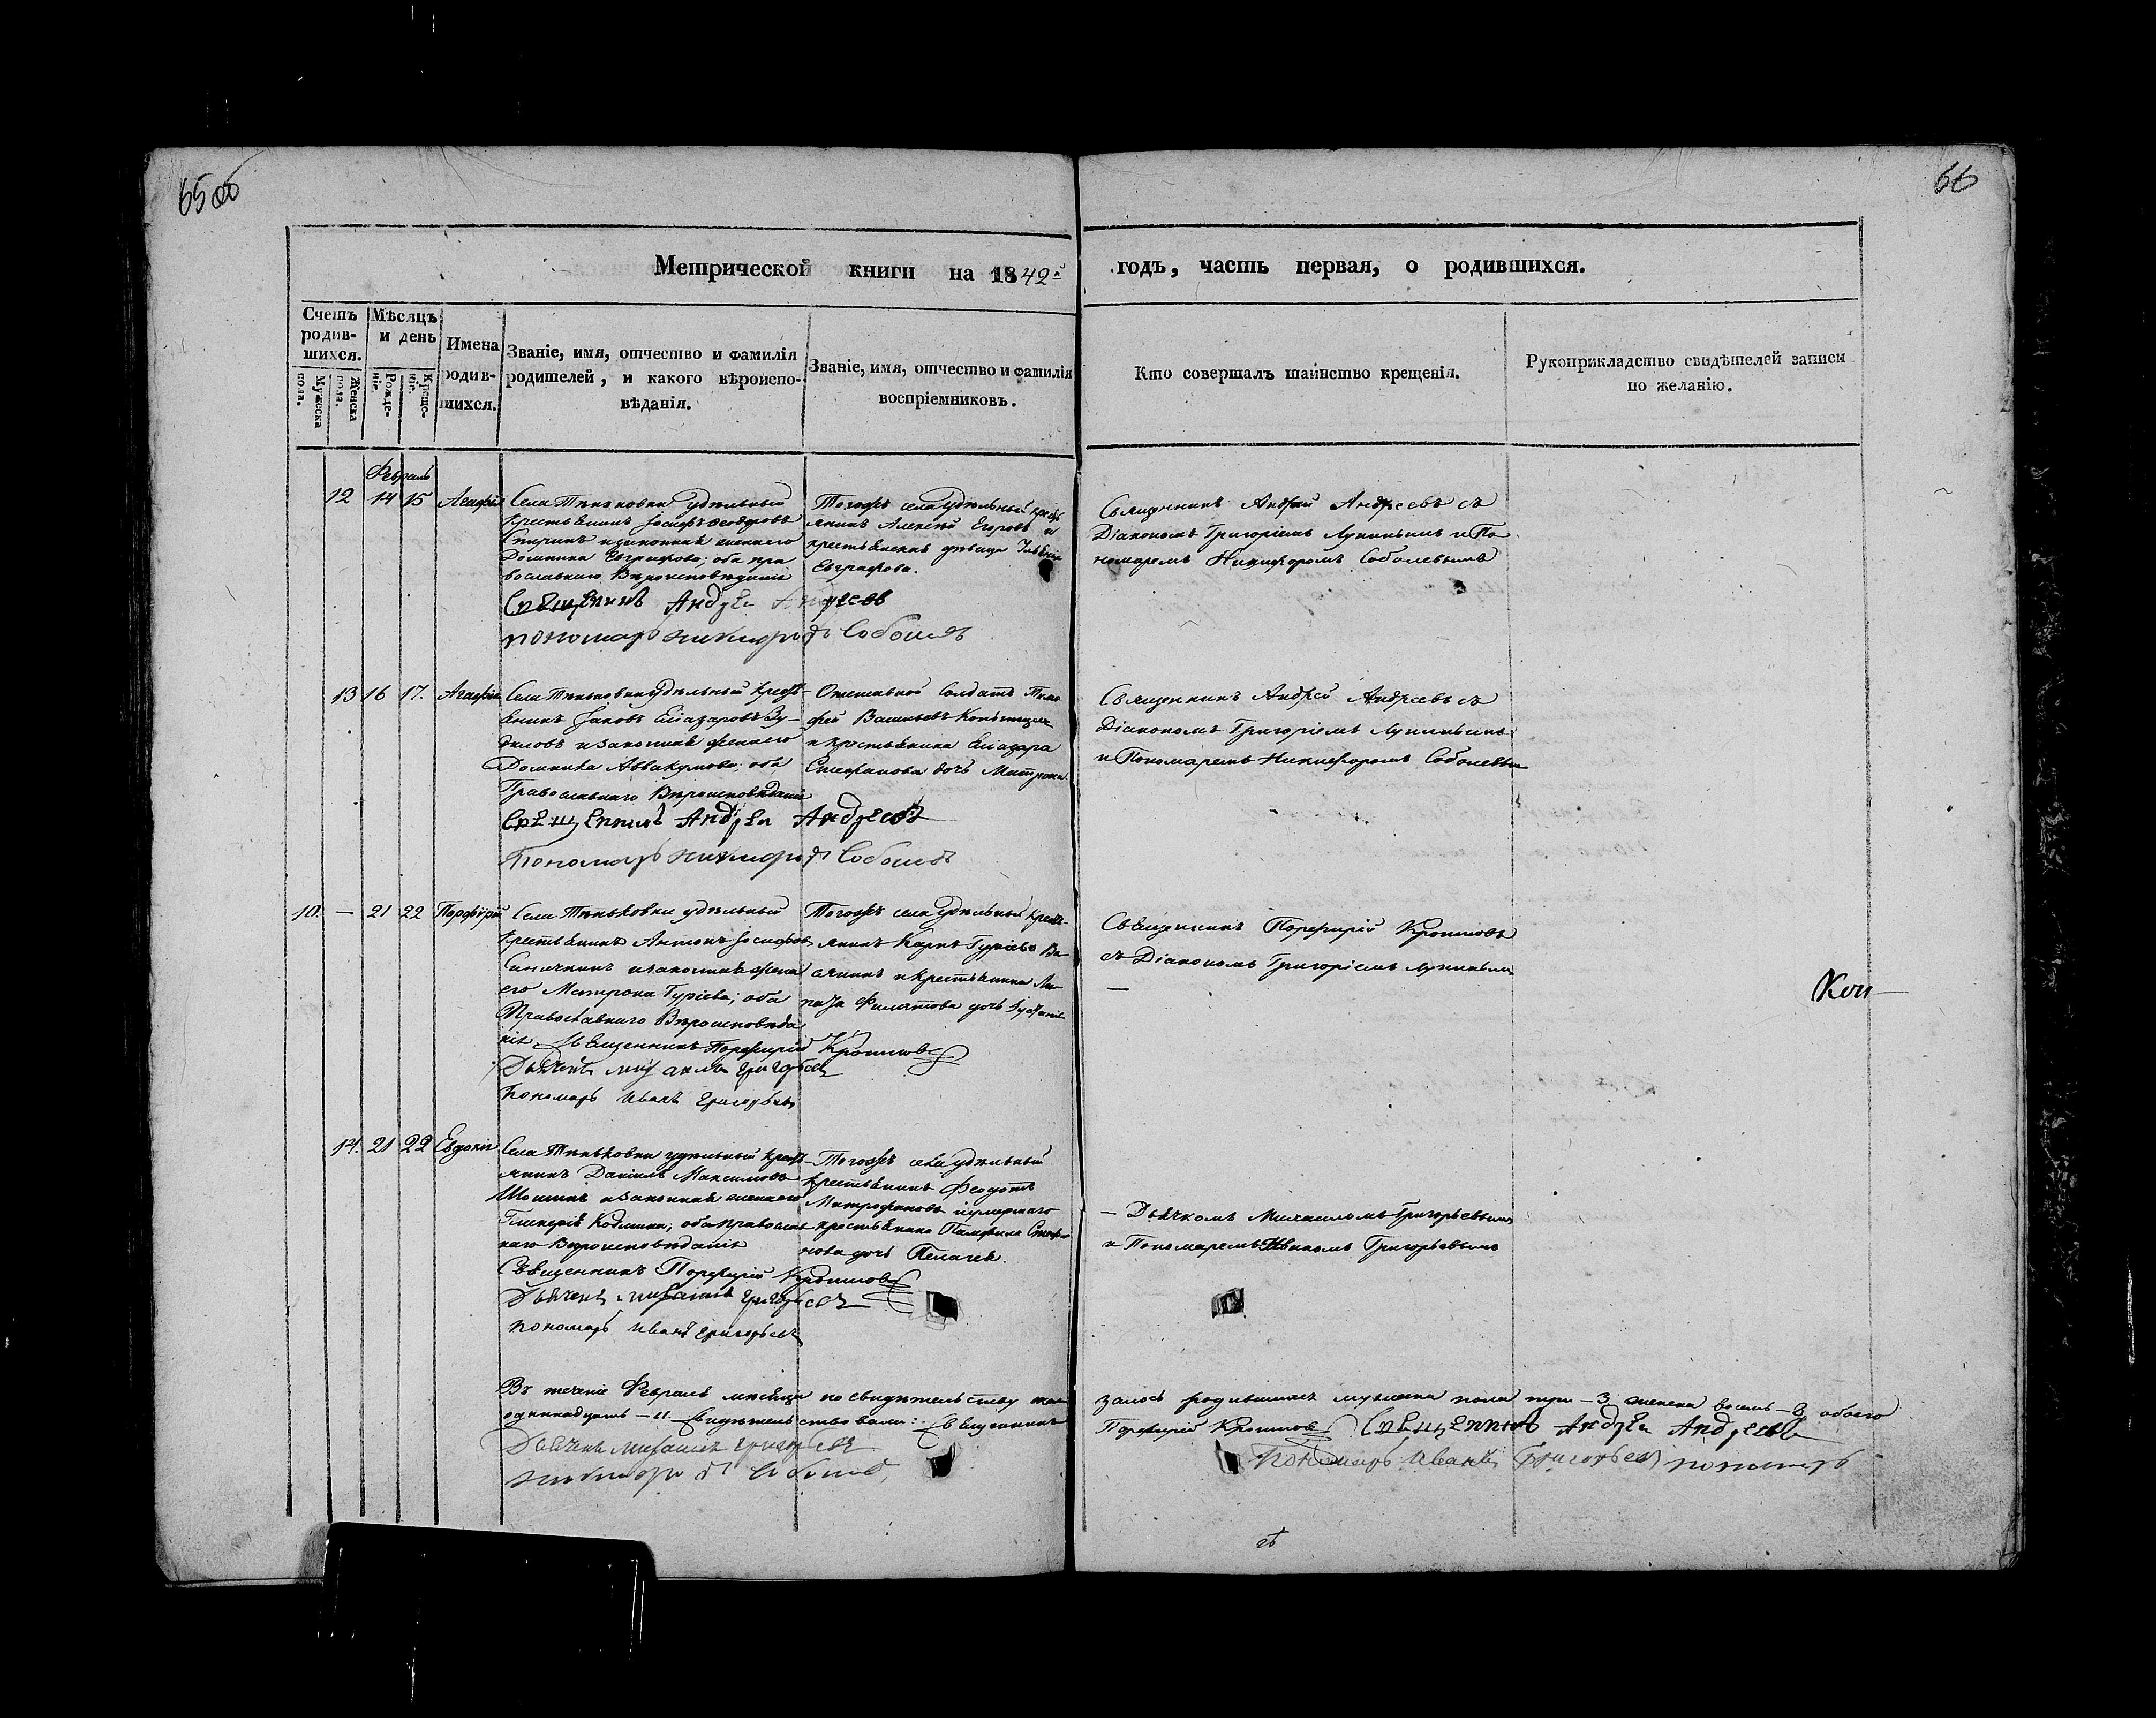 65 об
66
Метрической книги на 1842й годъ, часть первая, о родившихся.
Счетъ родив-
шихся.
Мужеска пола.
Женска пола.
Мѣсяцъ и день
Рожде-
ніе.
Креще-
ніе.
Имена
родив-
шихся.
Званіе, имя, отчество и фамилія
родителей, и какого вѣроиспо-
вѣданія.
Званіе, имя, отчество и фамилія
воспріемниковъ.
Кто совершалъ таинство крещенія.
Рукоприкладство свидѣтелей записи
по желанію.
Февраль
12 14 15 Агафія
Села Тиньковки удѣльный
крестьянинъ Іосифъ Феодоровъ
и законная жена его
Домника Евграфова; оба пра
вославнаго Вѣроисповѣданія
Тогожъ села удѣльный крест
янинъ Алексѣй Егоровъ и
крестьянская дѣвица
Евграфова.
Священникъ Андрей Андреевъ съ
Діакономъ Григоріемъ Лукинымъ и По
номаремъ Никифоромъ Соболевымъ
Священникъ Андрей Андреевъ
пономарь Никифоръ Соболевъ
13 16 17. Агафія
Села Тиньковки удѣльный крест-
янинъ Іаковъ Елїазаровъ
и законная жена его
Домника Аввакумова; оба
Православнаго Вѣроисповѣданія
Отставной Солдатъ Тимо
фей Васильевъ
и крестьянина Елїазара
Стефанова дочь Матрона.
Священникъ Андрей Андреевъ съ
Діакономъ Григоріемъ Лукинымъ
и Пономаремъ Никифоромъ Соболевым
Священникъ Андрей Андреевъ
Пономарь Никифоръ Соболевъ
10. — 21 22 Порфирій
Села Тиньковки удѣльный
крестьянинъ Антонъ Іосифовъ
Синичкинъ и законная жена
его Матрона Гурїева; оба
Православнаго Вѣроисповѣда
нія
Тогожъ села удѣльный крест-
янинъ Карпъ Гурїевъ
и крестьянина
Филатова дочь
Священникъ Порфирій Кротковъ
съ Діакономъ Григоріемъ Лукинымъ
—
Священникъ Порфирій Кротковъ
Дьячекъ Михаилъ Григорьевъ
Пономарь Иванъ Григорьевъ
14. 21 22 Евдокія
Села Тиньковки удѣльный крест-
янинъ Даніилъ Максимовъ
и законная жена его
Гликерія Козмина; оба православ
наго Вѣроисповѣданія
Тогожъ села удѣльный
крестьянинъ Феодотъ
Митрофановъ и умершаго
крестьянина Памфила
дочь Пелагея.
— Дьячкомъ Михаиломъ Григорьевымъ
и Пономаремъ Иваномъ Григорьевымъ
Священникъ Порфирій Кротковъ
Дьячекъ Михаилъ Григорьевъ
пономарь Иванъ Григорьевъ
Въ теченіе Февраля мѣсяца по свидѣтельству ока
залось родившихся мужеска пола три — 3 женска восемь — 8 обоего
одиннадцать — 11. Свидѣтельствовали: Священникъ
Порфирій Кротковъ Священникъ Андрей Андреевъ
Дьячекъ Михаилъ Григорьевъ
Пономарь Иванъ Григорьевъ пономарь
Никифоръ Соболевъ